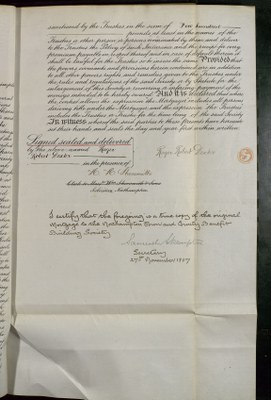 sanctioned by the Trustees in the sum of Two hundred
pounds at least in the names of the
Trustees or other persons or person nominated by them and deliver
to the Trustees the Policy of such Insurance and the receipt for any
premium payable in respect thereof and in case of default therein it
shall be lawful for the Trustees so to insure the same Provided that
the powers covenants and provisions herein contained are in addition
to all other powers rights and remedies given to the Trustees under
the rules and regulations of the said Society or by Statute for the
enlargement of their Security or securing or enforcing payment of the
moneys intended to be hereby secured And it is declared that when
the context allows the expression the Mortgagor includes all persons
deriving title under the Mortgagor and the expression the Trustees
includes the Trustees or Trustee for the time being of the said Society
In witness whereof the said parties to these Presents have hereunto
set their hands and seals the day and year first within written
Signed sealed and delivered
by the above named
Robert
in the presence of
Robert
Northampton
I certify that the foregoing is a true copy of the original
Mortgage to the Northampton Town and County Benefit
Building Society
Secretary
November